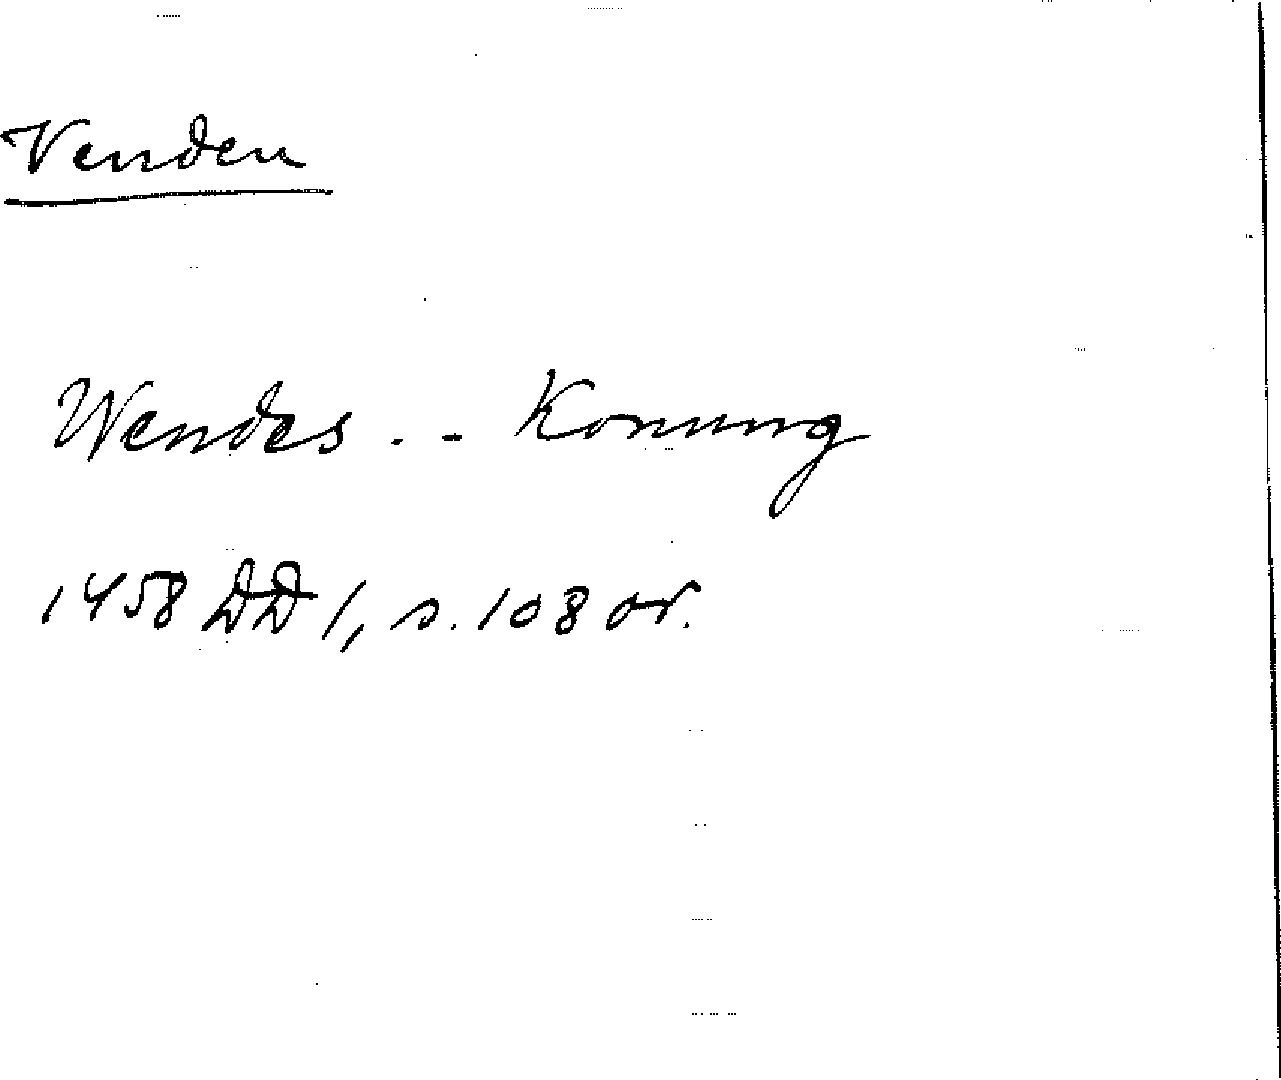 Venden
Wendes . . Konung
1458 DD 1, s. 108 or.